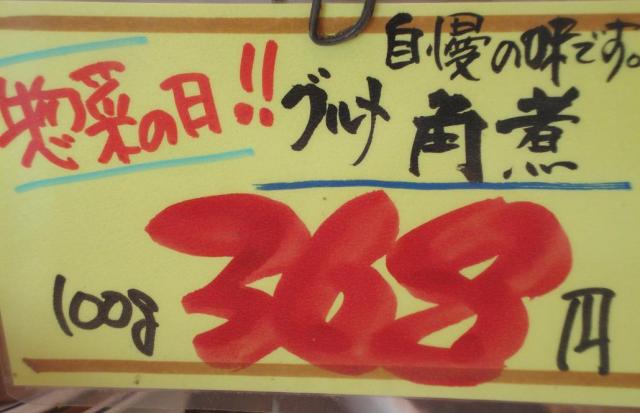 惣菜の日!!
自慢の味です。
グルメ角煮
100g 368円